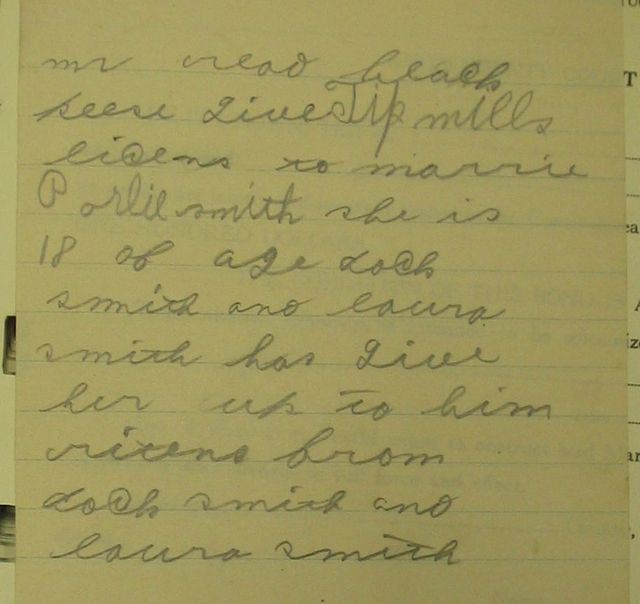 mr read black
peese give Tip mills
licens to marrie
Porlie smith she is
18 of age dock
smith and laura
smith has give
her up to him
ritens from
dock smith and
laura smith